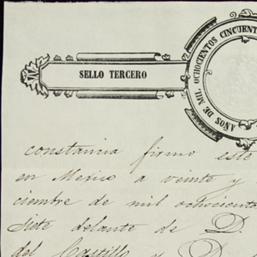 SELLO TERCERO
AÑOS DE MIL OCHOCIENTOS CINCUENT
constancia firmo este
en Mexico a veinte y
ciembre de mil ochocient
siete delante de D.
del Castillo y D.